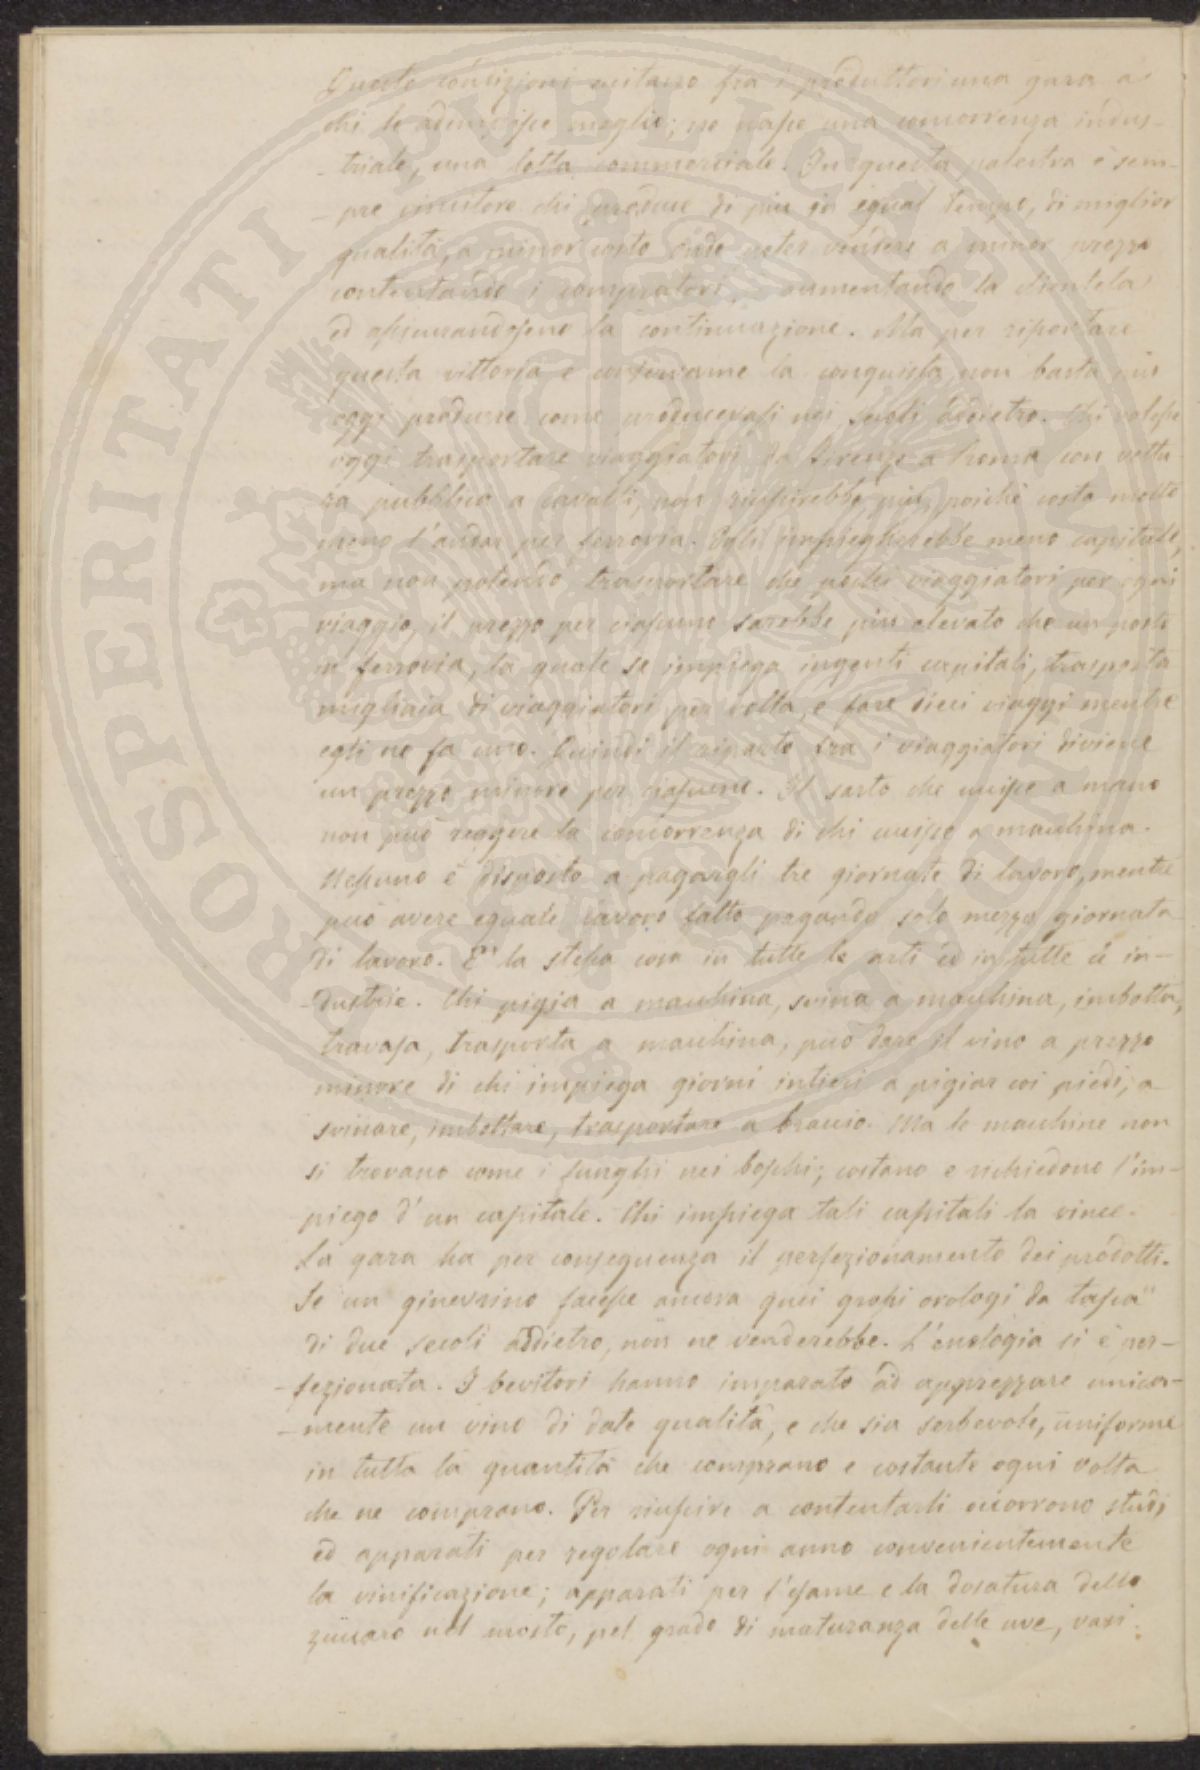 Queste condizioni eccitano fra i produttori una gara a
chi le adempisse meglio; ne nasce una concorrenza indus-
-triale, una lotta commerciale. In questa palestra è sem-
-pre vincitore chi produce di più in egual tempo, di miglior
qualità, a minor costo onde poter vendere a minor prezzo
contentando i compratori, aumentando la clientela
ed assicurandosene la continuazione. Ma per riportare
questa vittoria e conservarne la conquista, non basta più
oggi produrre come producevasi nei secoli addietro. Chi volesse
oggi trasportare viaggiatori da Firenze a Roma con vettu-
ra pubblica a cavalli, non riuscirebbe più, poichè costa molto
meno l'andar per ferrovia. Egli impiegherebbe meno capitale,
ma non potendo trasportare che pochi viaggiatori per ogni
viaggio, il prezzo per ciascuno sarebbe più elevato che un posto
in ferrovia, la quale se impiega ingenti capitali, trasporta
migliaia di viaggiatori per volta, e fare dieci viaggi mentre
egli ne fa uno. Quindi il riparto fra i viaggiatori diviene
un prezzo minore per ciascuno. Il sarto che cuisce a mano
non può reggere la concorrenza di chi cuisce a macchina.
Nessuno è disposto a pagargli tre giornate di lavoro, mentre
può avere eguale lavoro fatto pagando solo mezza giornata
di lavoro. E' la stessa cosa in tutte le arti ed in tutte le in-
-dustrie. Chi pigia a macchina, svina a macchina, imbotta,
travasa, trasporta a macchina, può dare il vino a prezzo
minore di chi impiega giorni intieri a pigiar coi piedi, a
svinare, imbottare, trasportare a braccio. Ma le macchine non
si trovano come i funghi nei boschi; costano e richiedono l'im-
piego d'un capitale. Chi impiega tali capitali la vince.
La gara ha per conseguenza il perfezionamento dei prodotti.
Se un ginevrino facesse ancora quei grossi orologi da tasca
di due secoli addietro, non ne venderebbe. L'enologia si è per-
-fezionata. I bevitori hanno imparato ad apprezzare unica-
-mente un vino di date qualità, e che sia serbevole, uniforme
in tutta la quantità che comprano e costante ogni volta
che ne comprano. Per riuscire a contentarli occorrono studj
ed apparati per regolare ogni anno convenientemente
la vinificazione; apparati per l'esame e la dosatura dello
zuccaro nel mosto, pel grado di maturanza delle uve, vasi
PROSPERITATI PUBLICAE AUGENDAE